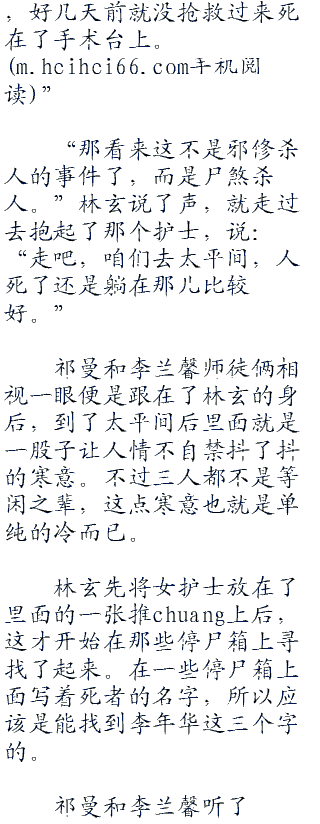 ，好几天前就没抢救过来死
在了手术台上。
(m.hcihci66.com手机阅
读)”
“那看来这不是邪修杀
人的事件了，而是尸煞杀
人。”林玄说了声，就走过
去抱起了那个护士，说：
“走吧，咱们去太平间，人
死了还是躺在那儿比较
好。”
祁曼和李兰馨师徒俩相
视一眼便是跟在了林玄的身
后，到了太平间后里面就是
一股子让人情不自禁抖了抖
的寒意。不过三人都不是等
闲之辈，这点寒意也就是单
纯的冷而已。
林玄先将女护士放在了
里面的一张推chuang上后，
这才开始在那些停尸箱上寻
找了起来。在一些停尸箱上
面写着死者的名字，所以应
该是能找到李年华这三个字
的。
祁曼和李兰馨听了